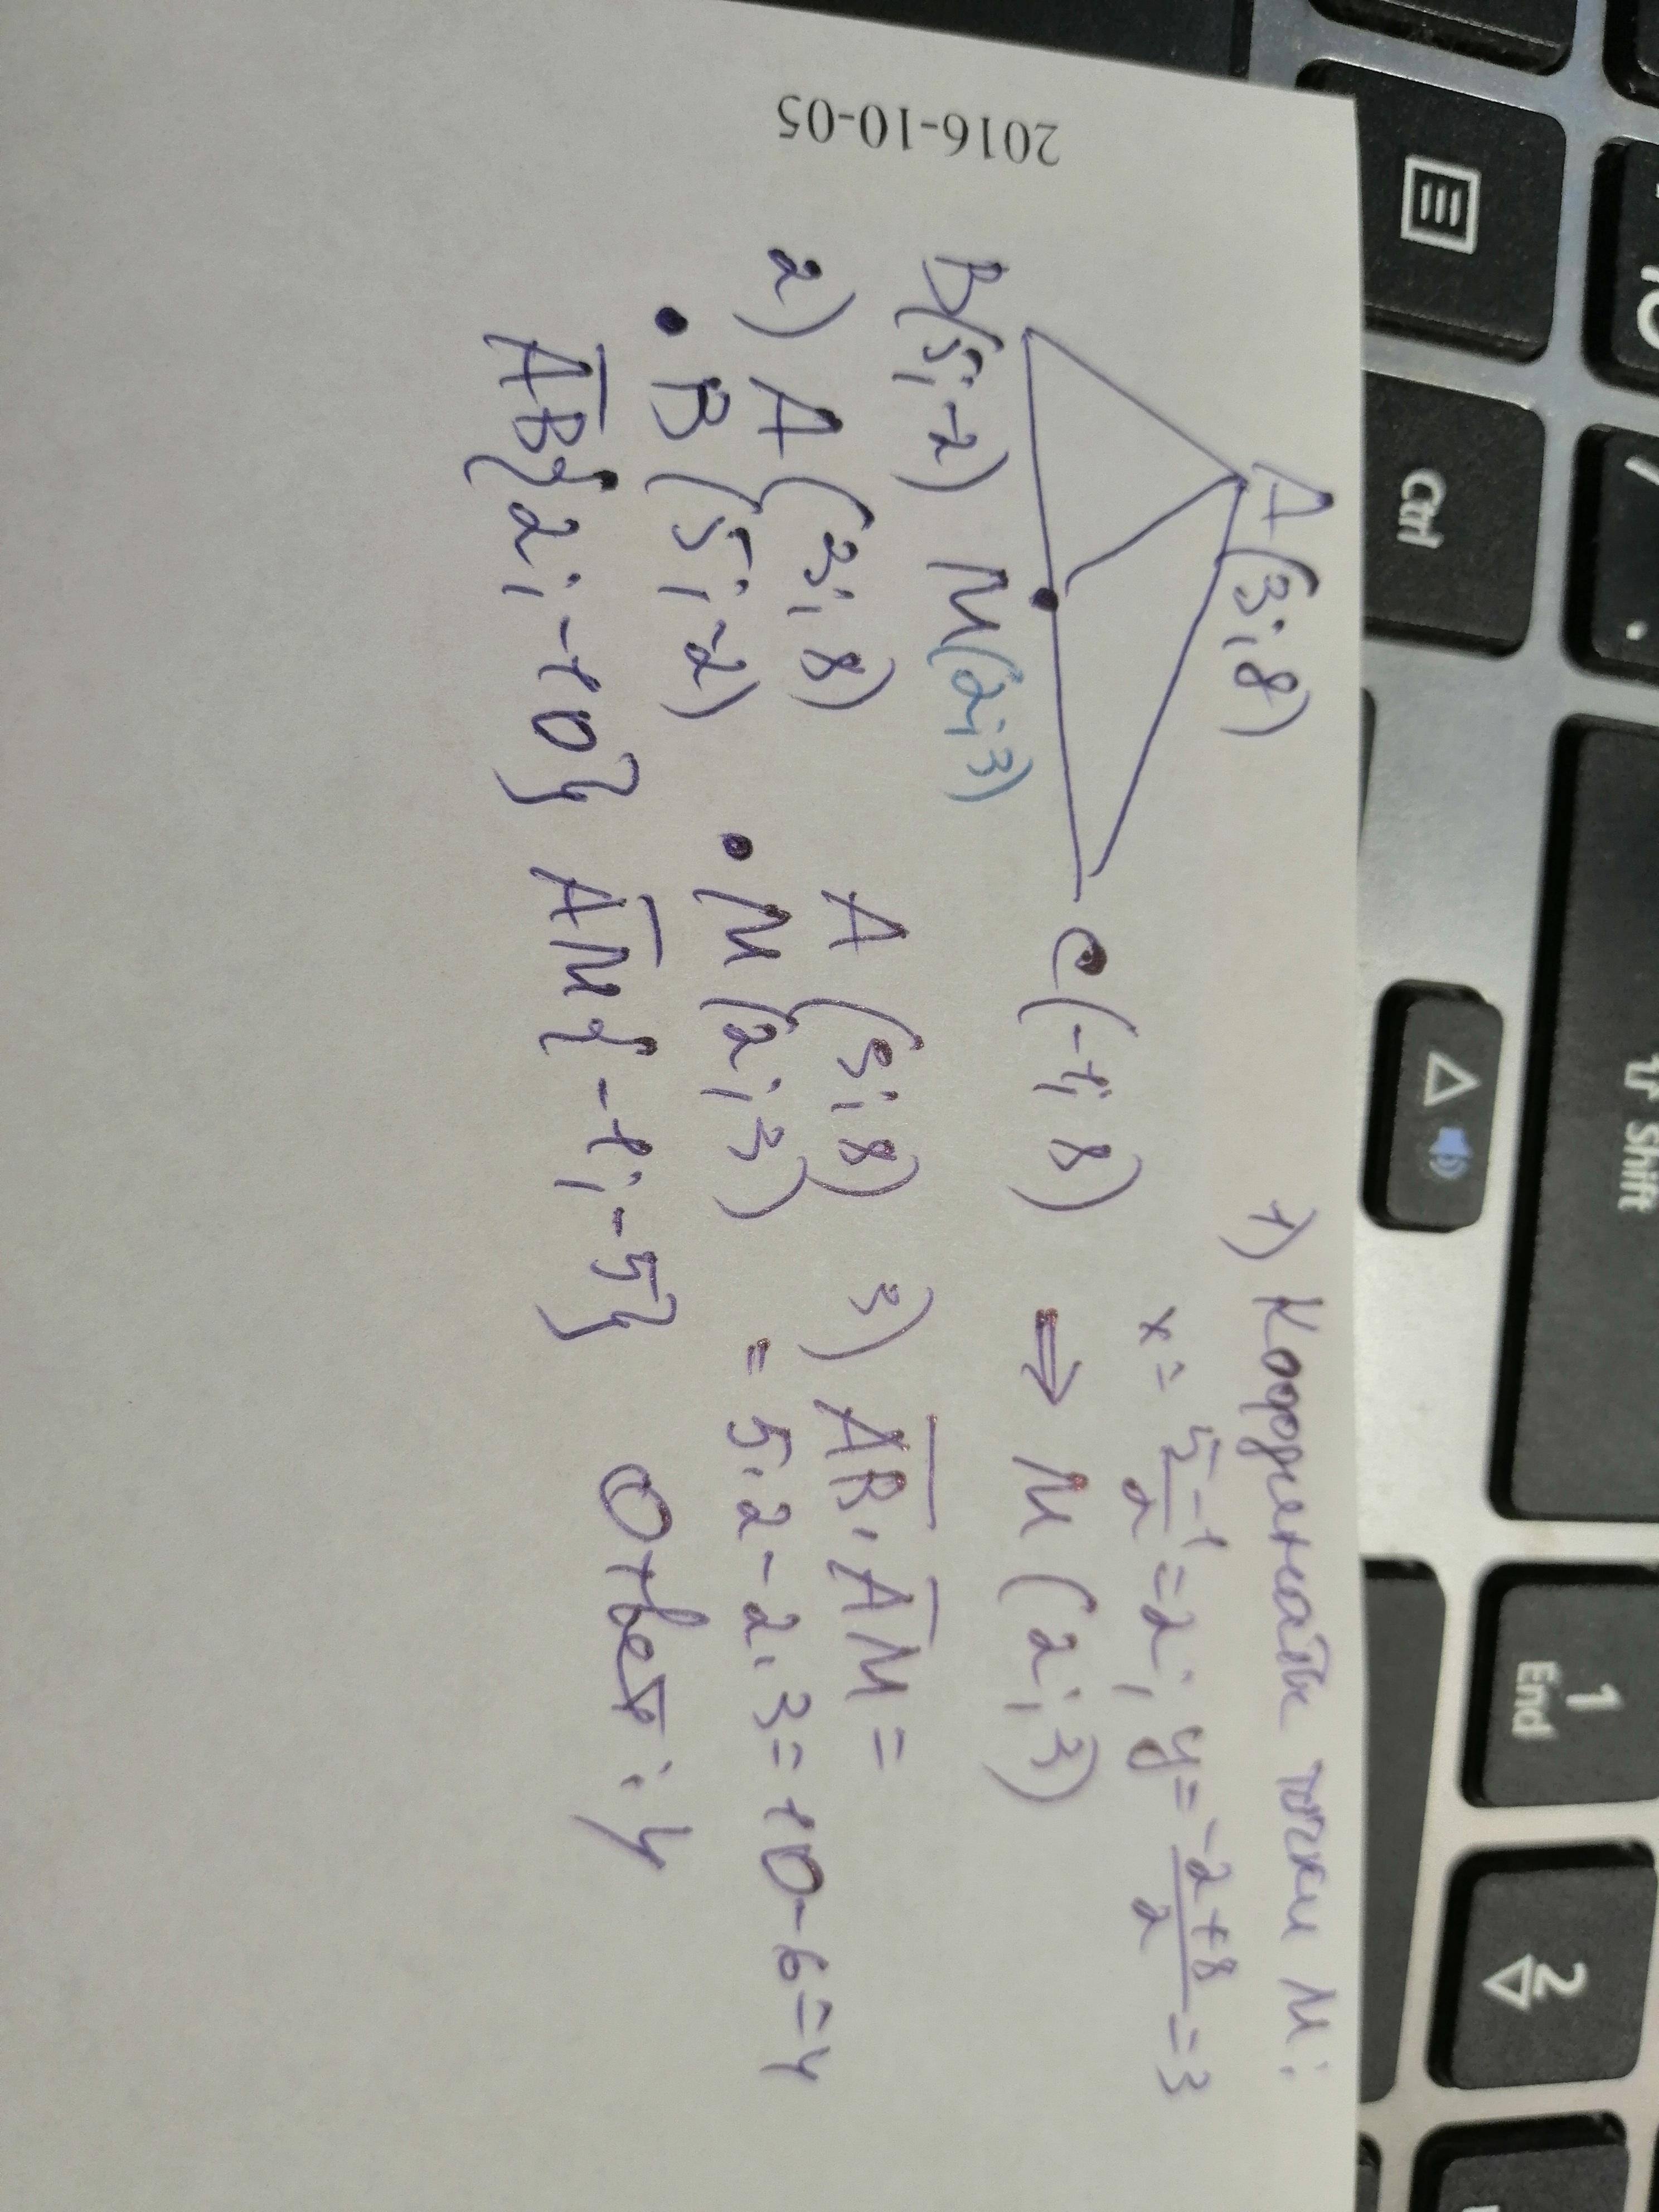 2016-10-05
A(3;8)
B(5;-2) M(2;3) C(-1;8)
1) Координаты точки M:
x = 5-1/2 = 2; y = -2+8/2 = 3
⇒ M(2;3)
2) A(3;8) A(3;8)
B(5;-2) M(2;3)
AB{2;-10} AM{-1;-5}
3) AB·AM =
= 5·2-2·3=10-6=4
Ответ: 4
Ctrl
Shift
1
End
2